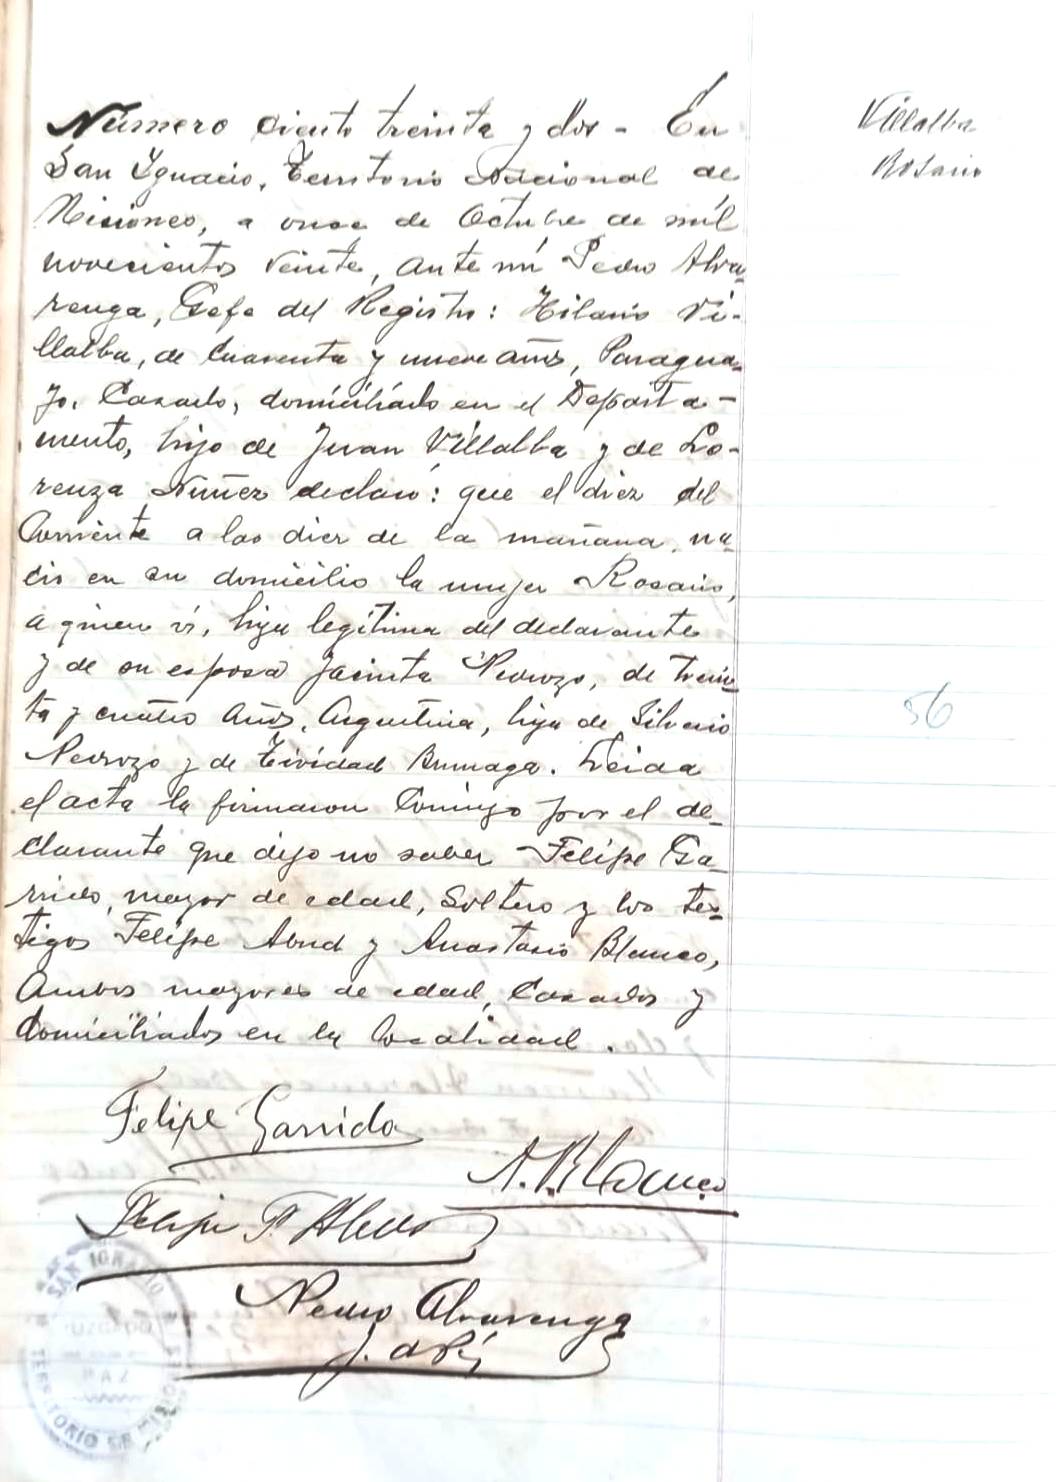 Número ciento treinta y dos - En
San Ygnacio, Territorio Nacional de
Misiones, a once de Octubre de mil
novecientos veinte, ante mi Pedro Alva-
renga, Gefe del Registro: Hilario Vi-
llalba, de cuarenta y nueve años, Paragua-
yo, Casado, domiciliado en el Departa-
mento, hijo de Juan Villalba y de Lo-
renza Nuñez declaró: que el diez del
Corriente a las diez de la mañana, na-
ció en su domicilio la mujer Rosario,
a quien ví, hija legítima del declarante
y de su esposa Jacinta Pedrozo, de trein-
ta y cuatro años, Argentina, hija de Silverio
Pedrozo y de. Leida
el acta la firmaron Conmigo por el de-
clarante que dijo no saber Felipe Ga-
rrido, mayor de edad, Soltero y los tes-
tigos Felipe y Anastasio Blanco,
Ambos mayores de edad, Casados y
domiciliados en la localidad.
Felipe Garrido
A. Blanco
Felipe
Pedro Alvarenga
Villalba
Rosario
56
SAN IGNACIO
PAZ
TERRITORIO DE MISIONES